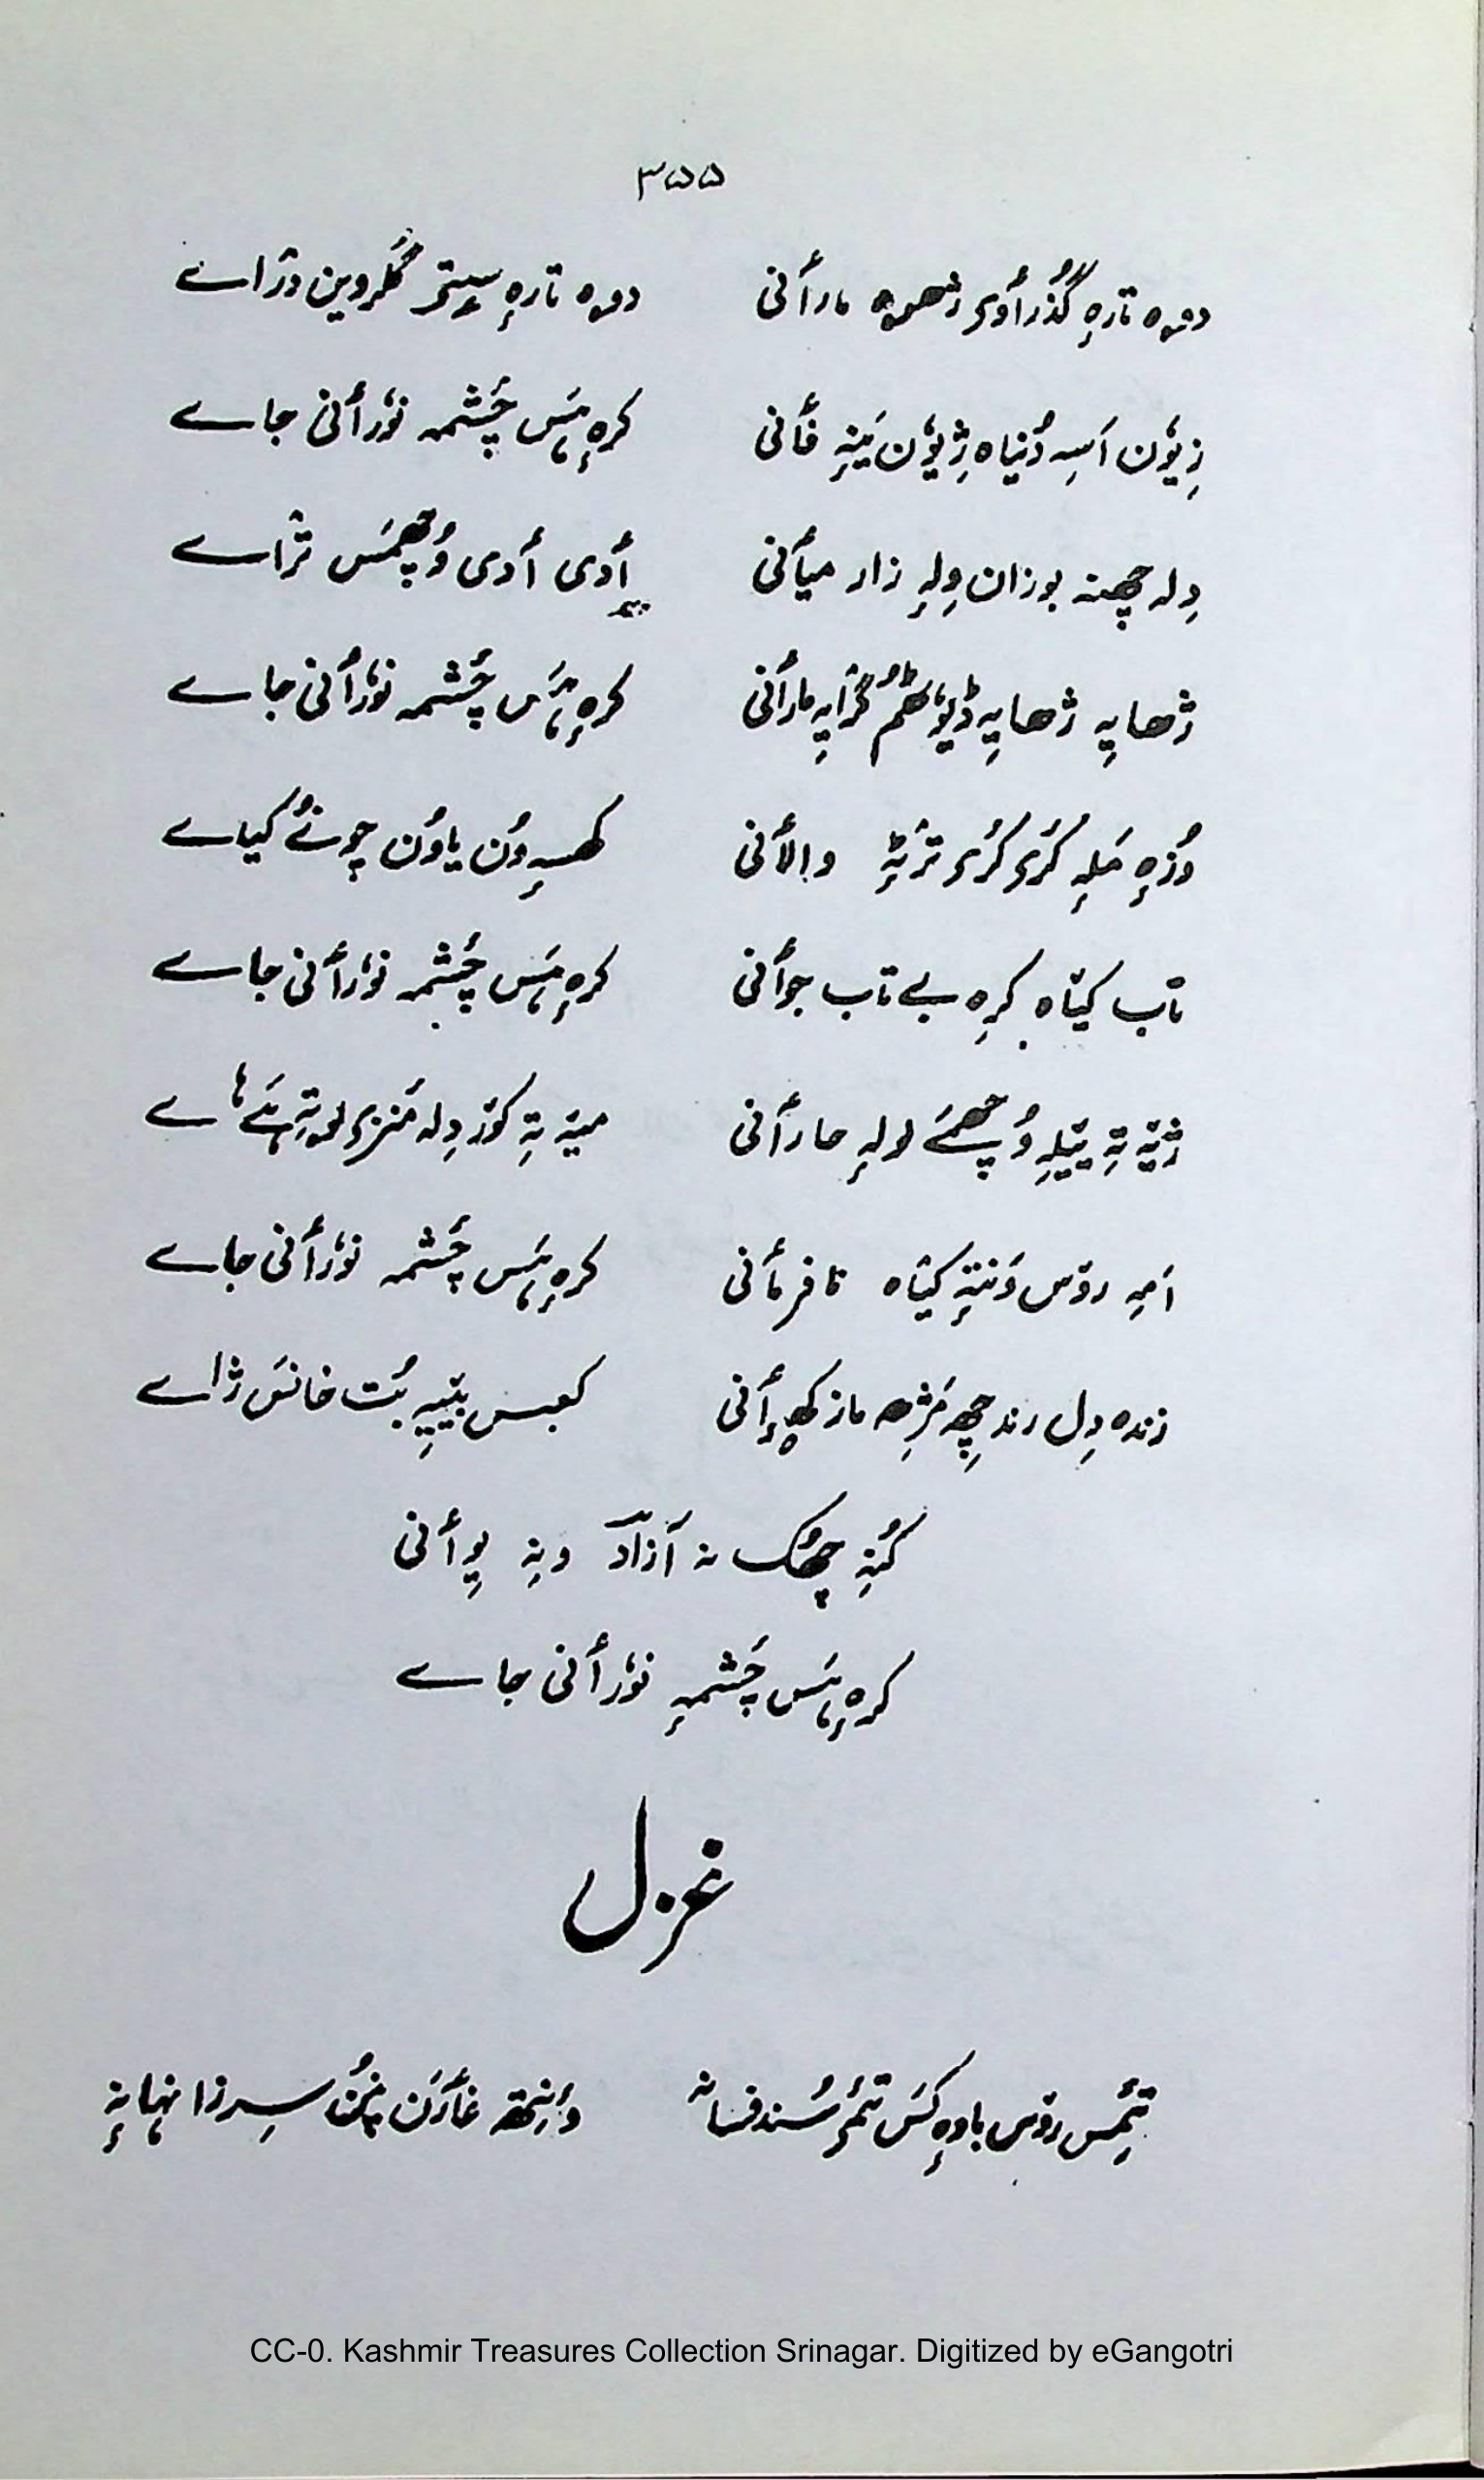 ۳۵۵
دورہ تارہٕ گُذرأوی ژھمرہ مارأنی دورہ تارہٕ سیتۍ گلروین دژاے
زِیوٗن اَسہِ دُنیاہ ژٕیوٗن یَنہٕ فأنی کرہٕ ہَس چَشمہ نوٗرأنی جاے
دِلہ چھنہ بوزان وِلہٕ زار میأنی پٕأدی أدی وُچھمَس تژاے
ژھایہِ ژھایہِ ڈیوٗٹھمُ گرٛایہِ مارأنی کرہٕ ہَس چَشمہ نوٗرأنی جاے
وُزہٕ مَلہٕ کرُی کرُی ترٛٹہٕ والأنی کھسہٕ وُن یاوُن چونُے کیاے
تاب کیٛتاہ کرِہ بے تاب جوأنی کرہٕ ہَس چَشمہ نوٗرأنی جاے
ژیٚہ تہِ ییٚلہِ وُچھمَے لولہٕ مارأنی میٚہ تہِ کوٚر دِلہ مَنزی لوتہِ ہَے ہاے
اَمہِ روٚس وَنتہٕ کیٛتاہ نافرمأنی کرہٕ ہَس چَشمہ نوٗرأنی جاے
زندہ دِل رند چھِ مَژھ ماز کھیٲنی کعبس بیٚیہِ بُت خانسَ ژاے
کُنہِ چھُک نہ آزادؔ ونہِ یوِأنی
کرہٕ ہَس چَشمہٕ نوٗرأنی جاے
غزل
تیٚمِس روٚس باوہٕ کَس تیٚمۍ سُند فسانہ وَنِتھ غأرَن نِمُن سِر زانہانہٕ
CC-0. Kashmir Treasures Collection Srinagar. Digitized by eGangotri